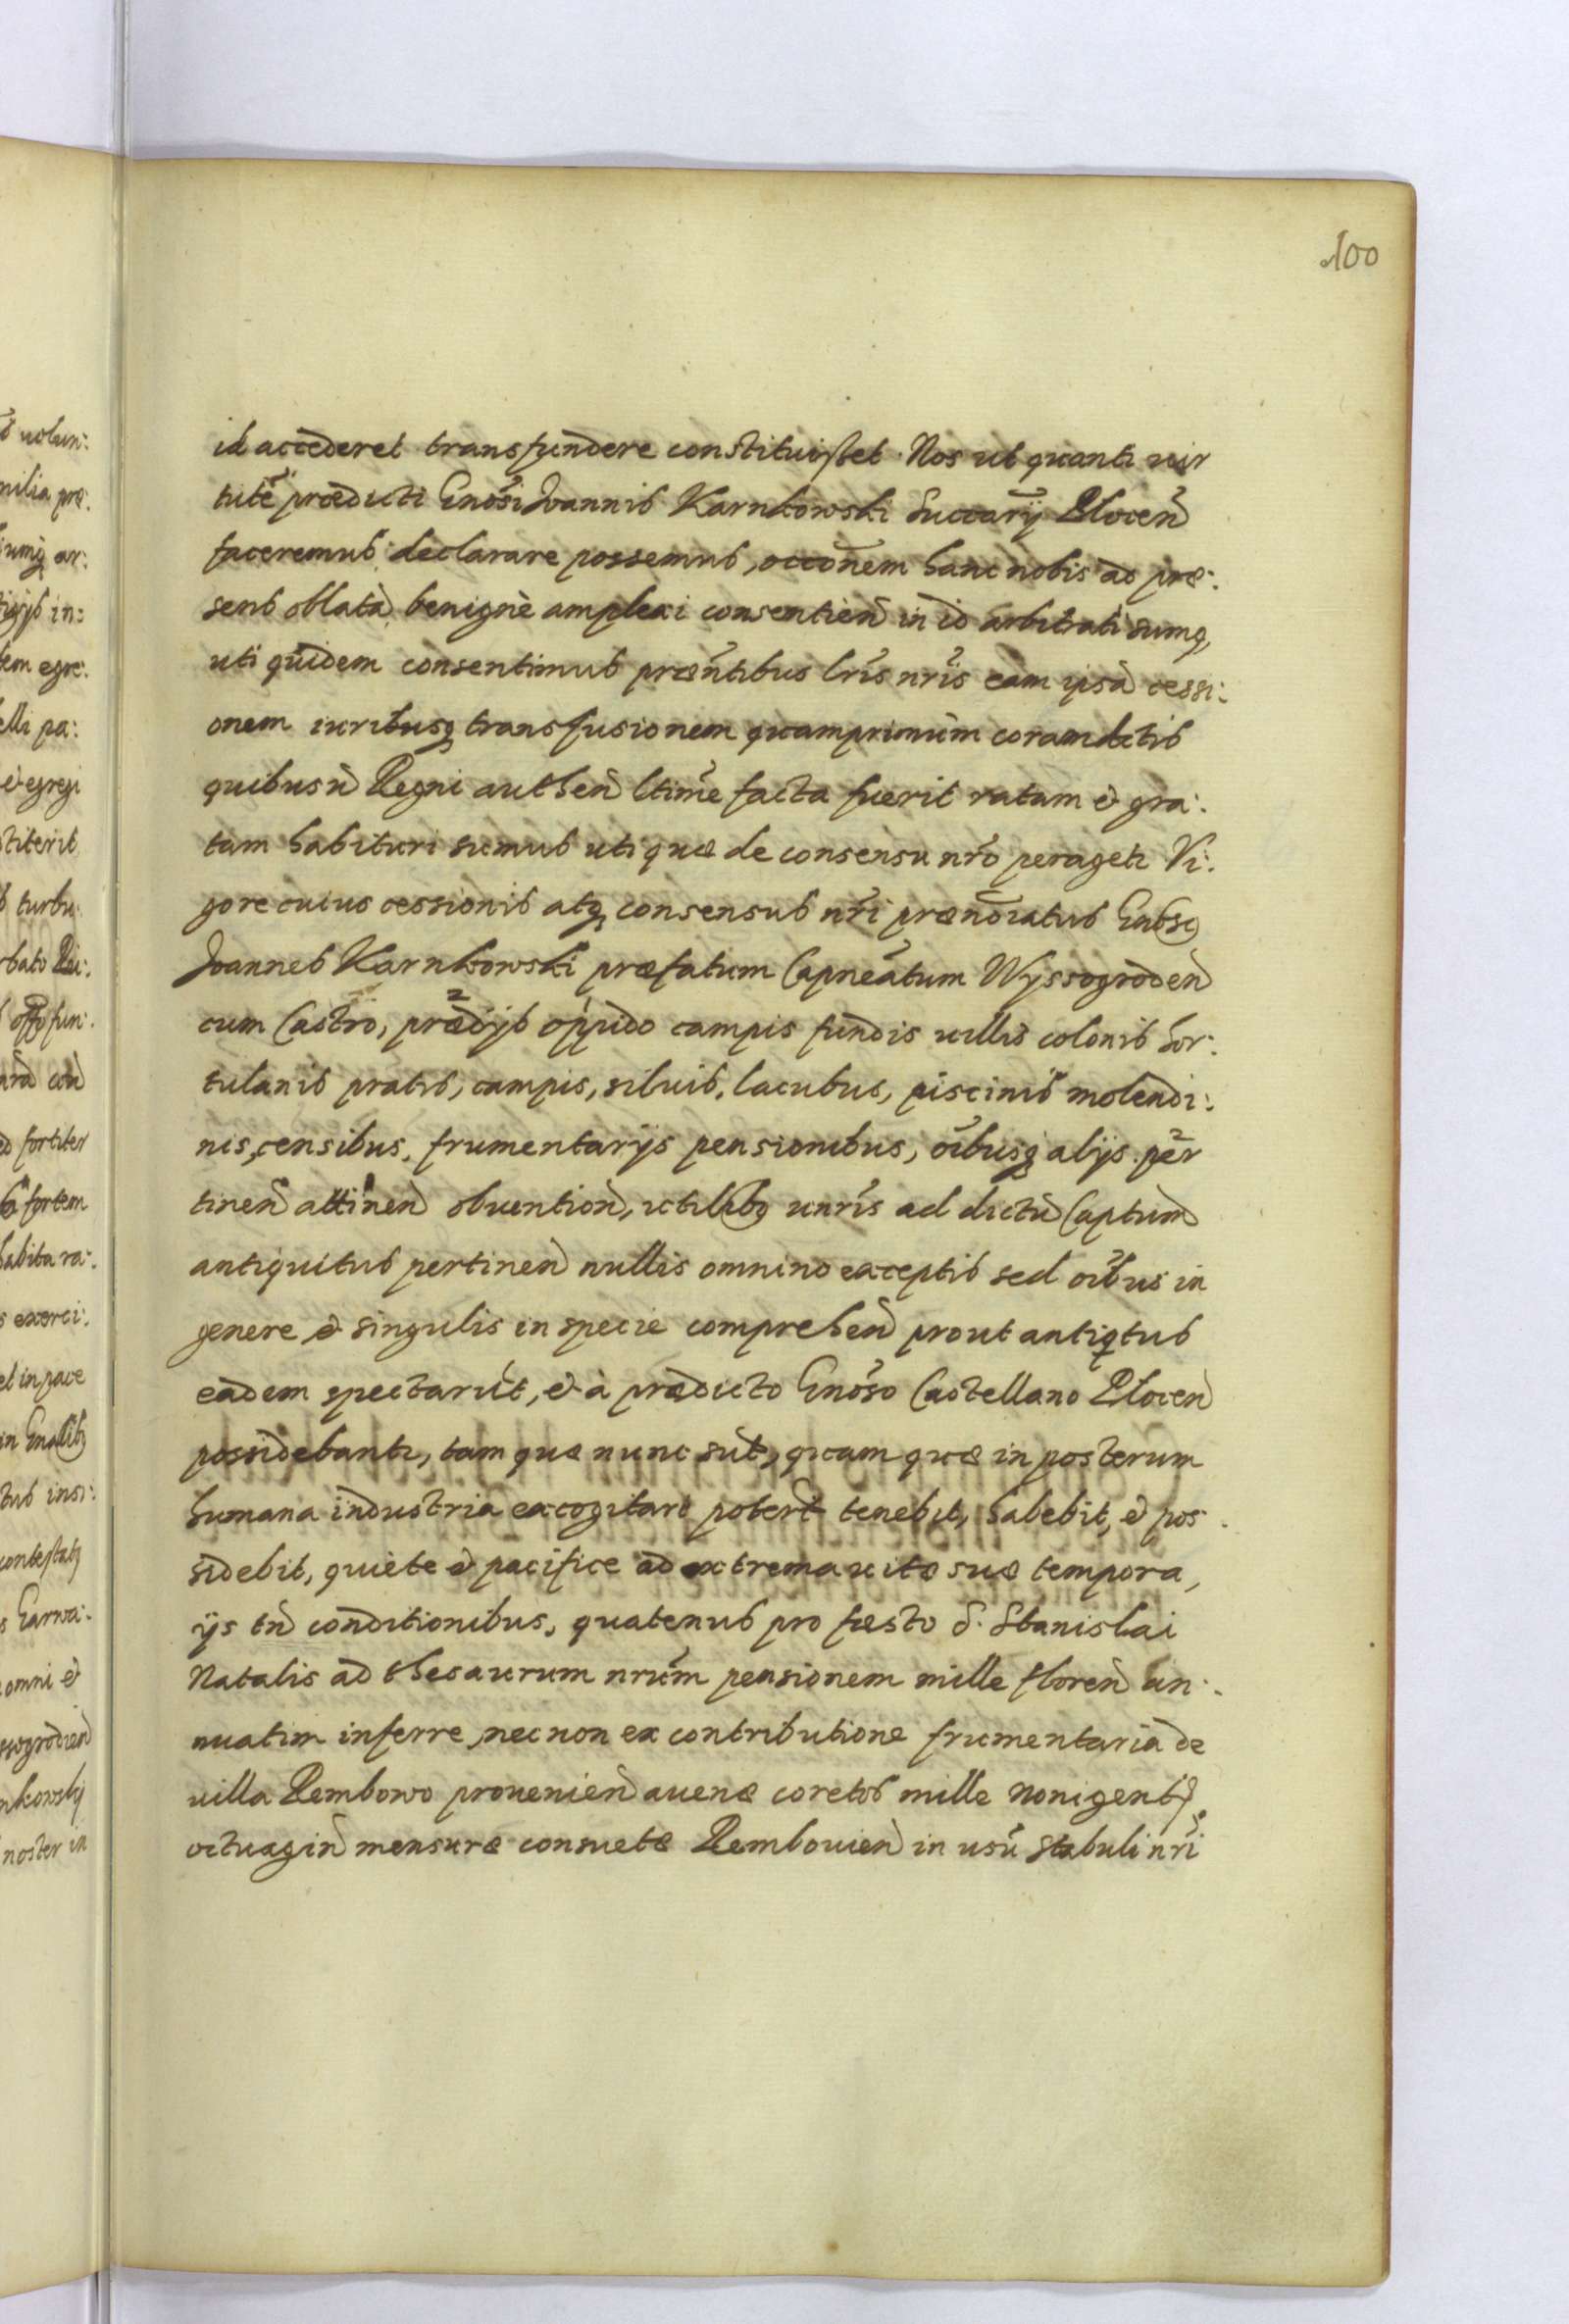 100
id accederet transfundere constituisset. Nos ut quanti vir
tutē prædicti Gnosi Joannis Karnkowski Succarij Plocen
faceremus declarare possemus, occōnem hanc nobis ad præ:
sens oblatā benignè amplexi consentien in id arbitrati sumq,
uti quidem consentimus præntibus lris nris eam ipsā cessi:
onem iuribusq transfusionem quamprimum coram actis
quibusū Regni authen ltime facta fuerit ratam & gra:
tam habituri sumus uti quæ de consensu nro peragetr Vi:
gore cuius cessionis atq consensus nri prænoiatus Gnbsq
Joannes Karnkowski præfatum Capneatum Wyssogroden
cum Castro, prædijs oppido campis fundis villis colonis hor:
tulanis pratis, campis, siluis, lacubus, piscinis molendi:
nis, censibus, frumentarijs pensionibus, oibusq alijs per
tinen attinen obuention, vtilibq unris ad dictū Captum
antiquitus pertinen nullis omnino exceptis sed oibus in
genere & singulis in specie comprehen prout antiqtus
eadem spectarūt, & à prædicto Gnoso Castellano Plocen
possidebantr, tam quæ nunc sūt, quam quæ in posterum
humana industria excogitari poterit tenebit, habebit, & pos
sidebit, quiete & pacifice ad extrema vitæ suæ tempora,
ijs tn conditionibus, quatenus pro fæsto S. Stanislai
Natalis ad thesaurum nrum pensionem mille floren an:
nuatim inferre, necnon ex contributione frumentaria de
uilla Rembowo prouenien auenæ coretos mille nonigentos
octuagin mensuræ consuetæ Rembouien in usū stabuli nri